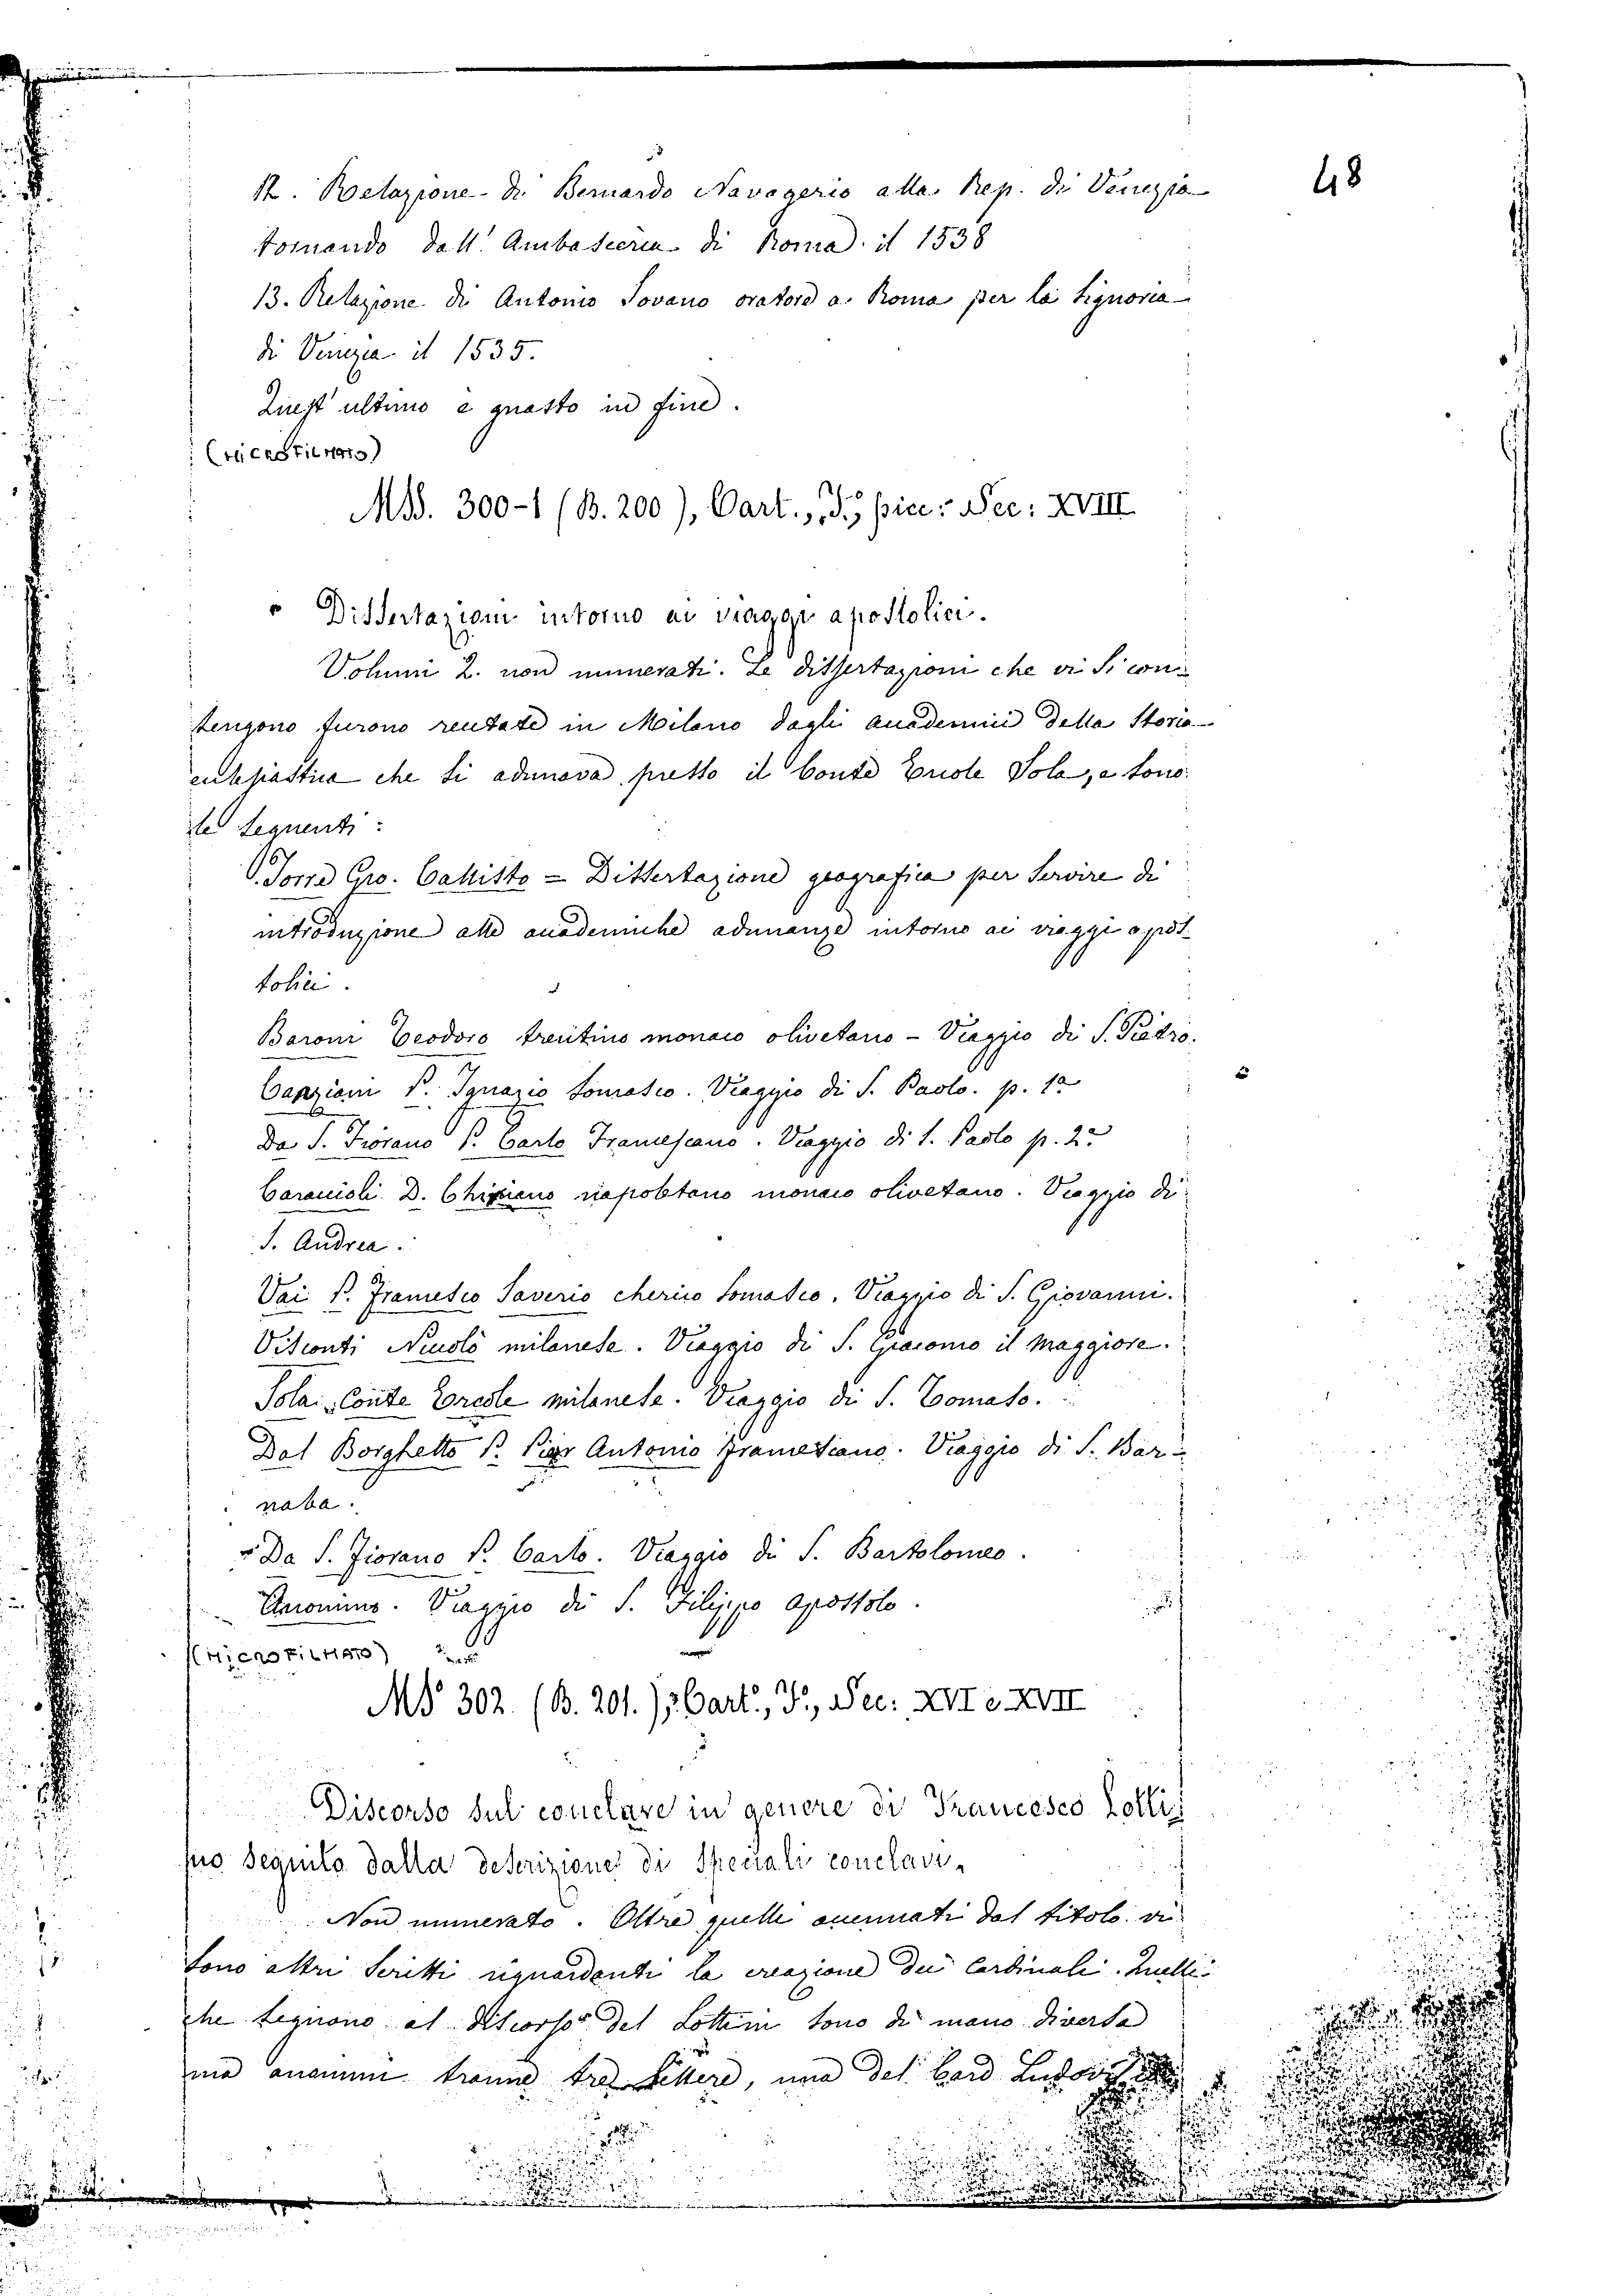 48
12. Relazione di Bernardo Navagerio alla Rep. di Venezia
tornando dall'Ambasceria di Roma il 1538
13. Relazione di Antonio Sovano oratore a Roma per la Signoria
di Venezia il 1535.
Quest'ultimo è guasto in fine.
(MICROFILMATO)
MSS. 300-1 (B. 200), Cart., F.° picc: Sec: XVIII
Dissertazioni intorno ai viaggi apostolici.
Volumi 2. non numerati. Le dissertazioni che vi si con-
tengono furono recitate in Milano dagli accademici della Storia
ecclesiastica che si adunava presso il Conte Ercole Sola, e sono
le seguenti:
Torre Gio. Callisto = Dissertazione geografica per servire di
introduzione alle accademiche adunanze intorno ai viaggi apos-
tolici.
Baroni Teodoro trentino monaco olivetano - Viaggio di S. Pietro.
Canziani P. Ignazio somasco. Viaggio di S. Paolo. p. 1a
Da S. Fiorano P. Carlo Francescano. Viaggio di S. Paolo p. 2a
Caraccioli D. napoletano monaco olivetano. Viaggio di
S. Andrea.
Vai P. Francesco Saverio cherico somasco. Viaggio di S. Giovanni.
Visconti Niccolò milanese. Viaggio di S. Giacomo il maggiore.
Sola Conte Ercole milanese. Viaggio di S. Tomaso.
Dal Borghetto P. Pier Antonio francescano. Viaggio di S. Bar-
naba.
Da S. Fiorano P. Carlo. Viaggio di S. Bartolomeo.
Anonimo. Viaggio di S. Filippo apostolo.
(MICROFILMATO)
MS 302. (B. 201.), Cart., F.°, Sec: XVI e XVII
Discorso sul conclave in genere di Francesco Lotti
seguito dalla descrizione di speciali conclavi.
Non numerato. Oltre quelli accennati dal titolo vi
sono altri scritti riguardanti la creazione dei Cardinali. Quelli
che seguono al discorso del Lottini sono di mano diversa
ma anonimi tranne tre lettere, una del Card